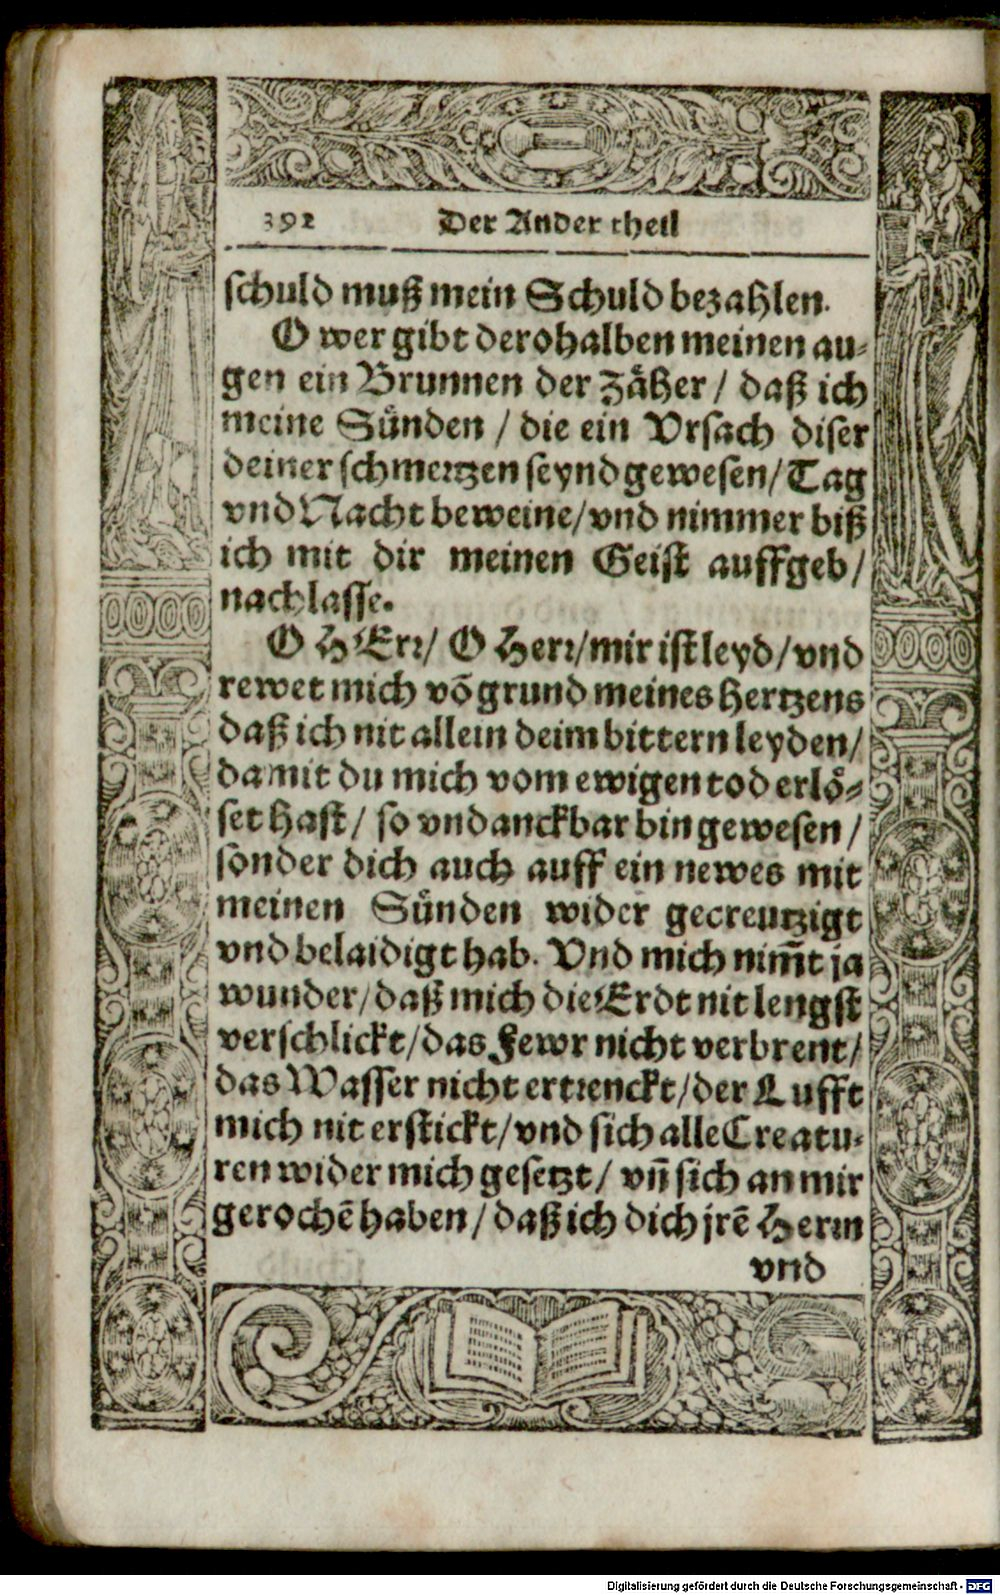 392 Der Ander theil
schuld muß mein Schuld bezahlen.
O wer gibt derohalben meinen au-
gen ein Brunnen der Zäher / daß ich
meine Sünden / die ein Vrsach diser
deiner schmertzen seynd gewesen / Tag
vnd Nacht beweine / vnd nimmer biß
ich mit dir meinen Geist auffgeb /
nachlasse.
O HErr / O Herr / mir ist leyd / vnd
rewet mich võ grund meines hertzens
daß ich nit allein deim bittern leyden /
damit du mich vom ewigen tod erlö-
set hast / so vndanckbar bin gewesen /
sonder dich auch auff ein newes mit
meinen Sünden wider gecreutzigt
vnd belaidigt hab. Vnd mich nim̃t ja
wunder / daß mich die Erdt nit lengst
verschlickt / das Fewr nicht verbrent /
das Wasser nicht ertrenckt / der Lufft
mich nit erstickt / vnd sich alle Creatu-
ren wider mich gesetzt / vñ sich an mir
gerochẽ haben / daß ich dich jrẽ Herrn
vnd
Digitalisierung gefördert durch die Deutsche Forschungsgemeinschaft - DFG